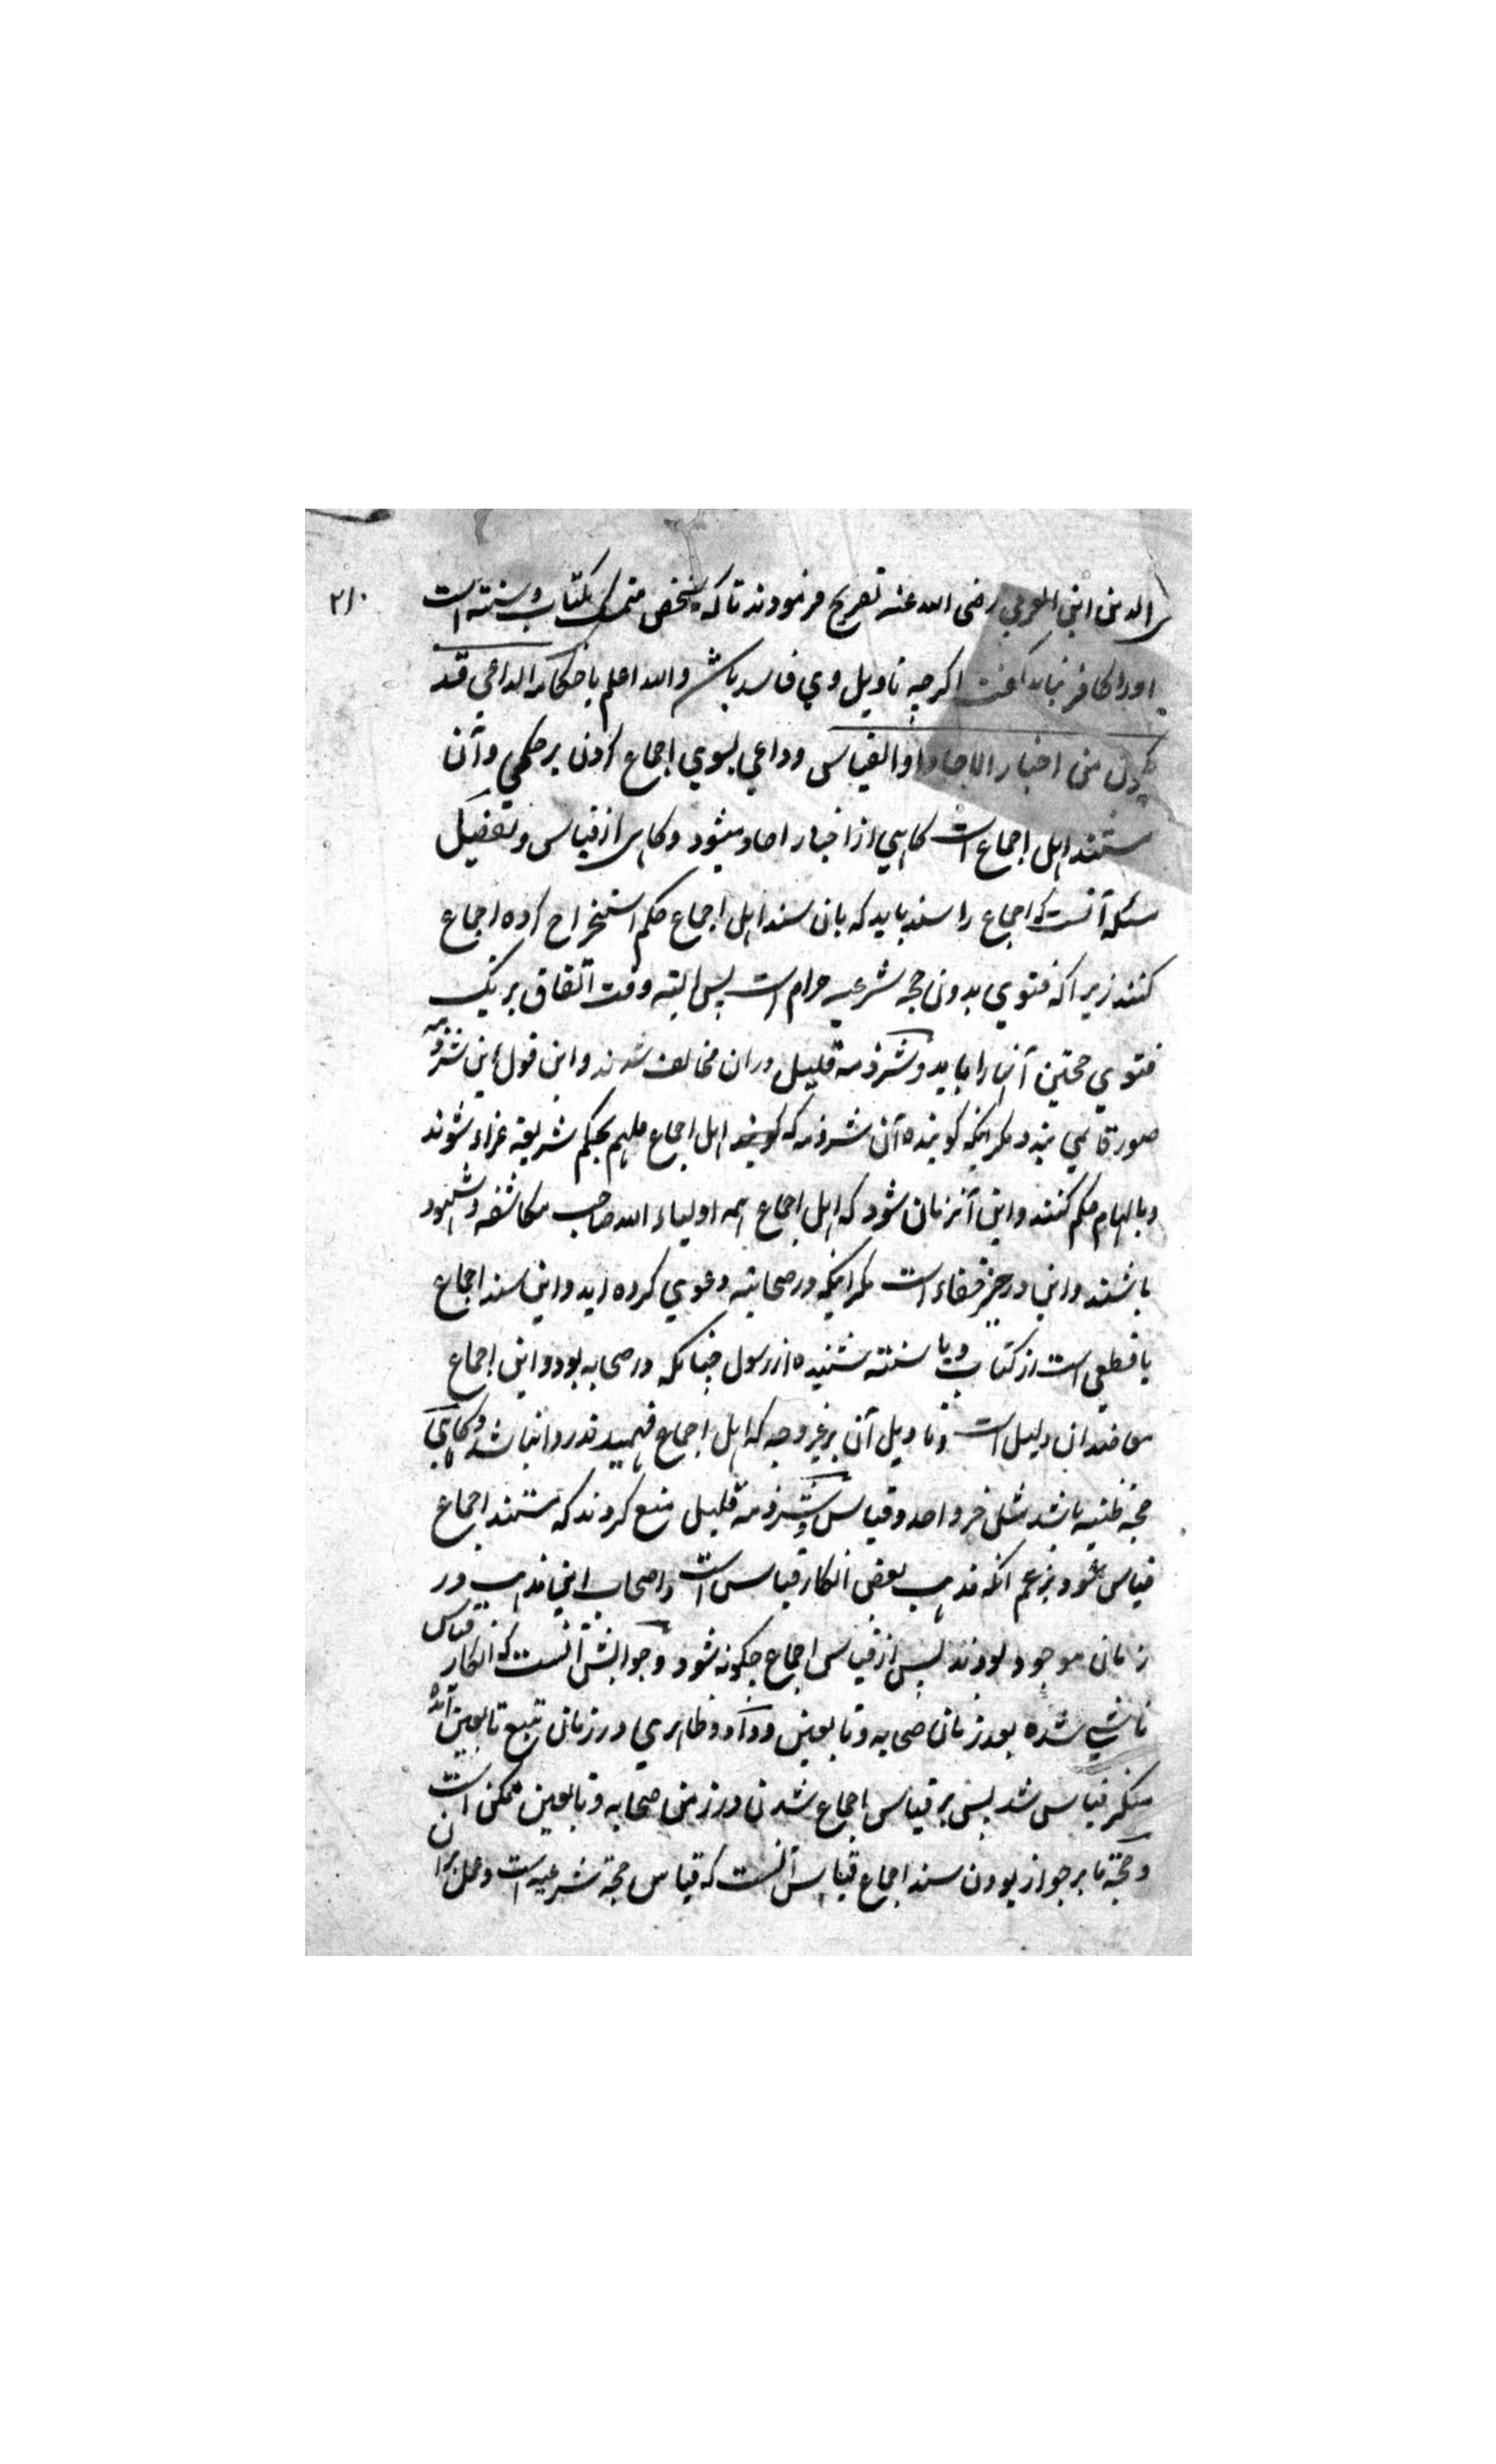 ۲۱۰
الدین ابن العربی رضی الله عنه تصریح فرمودند تا که شخص متمسک بکتاب و سنته است
اورا کافر نباید گفت اکرچه تاویل وی فاسد باشد والله اعلم باحکامه الداعی قد
یکون من اخبار الاحاد او القیاس وداعی بسوی اجماع کردن بر حکمی وآن
مستند اهل اجماع است کاهی از اخبار احاد میشود وکاهی از قیاس وتفصیل
مسئله آنست که اجماع را سند باید که بان سند اهل اجماع حکم استخراج کرده اجماع
کنند زیراکه فتوی بدون حجه شرعیه حرام است پس البته وقت اتفاق بر یک
فتوی حجتین آنها را باید وشرذمه قلیل دران مخالف شدند واین قول این شرذمه
صورة نمی بندد مکر اینکه کوینده آن شرذمه که اهل اجماع ملهم بحکم شریعة غراء شوند
وبالهام حکم کنند واین آنزمان شود که اهل اجماع همه اولیاء الله صاحب مکاشفه وشهود
باشند واین در حیز خفاء است مکر اینکه در صحابته دعوی کرده اید واین سند اجماع
یا قطعی است از کتاب و یا سنته شنیده از رسول چنانکه در صحابه بود واین اجماع
دلیل است وتاویل آن بر غیر وجه که اهل اجماع فهمیدند روا نباشد وکاهی
حجه ظنیه باشد مثل خبر واحد وقیاس وشرذمه قلیل منع کردند که مستند اجماع
قیاس شود بزعم انکه مذهب بعضی انکار قیاس است واصحاب این مذهب در
زمان موجود بودند پس از قیاس اجماع چکونه شود وجوابش آنست که انکار قیاس
ناشی شده بعد زمان صحابه وتابعین وداود ظاهری در زمان تبع تابعین آمده
منکر قیاس شد پس بر قیاس اجماع شدن در زمن صحابه وتابعین ممکن است
وحجة ما بر جواز بودن سند اجماع قیاس آنست که قیاس حجة شرعیه است وعمل بران